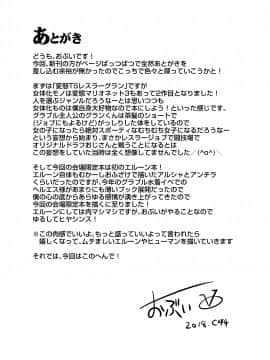 あとがき
どうも、おぶいです！
今回、新刊の方がページぱっつぱつで全然あとがきを
差し込む余裕が無かったのでこっちで色々と喋っていこうかと！
まずは「変態TSレスラーグラン」ですが
女体化モノは変態マリオネット3もあって2作目となりました！
人を選ぶジャンルだろうなーとは思いつつも
女体化ものは僕自身大好物なので本にしよう！といった感じです、
グラブル主人公のグランくんは茶髪のショートで
（ジョブにもよるけど）がっしりした体をしているので
女の子になったら絶対スポーティなむちむち女子になるだろうなー
という妄想から始まり、まさかレスラージョブ闘技場で
オリジナルドラフおじさんと戦うことになるとは
この妄想をしていた当時は全く想像してませんでした／(^o^)＼
そして今回の会場限定本は初のエルーン本！
エルーン自体もむかーしおふざけで描いたアルシャとアンチラ
くらいだったのですが、今年のグラブル水着イベでの
ヘルエス様があまりにも薄いブック展開だったので
僕の心の底からあらゆる感情が湧き上がってきたので
今回の会場限定本を描くに至りました！
エルーンにしては肉マシマシですが、おぶいがやることなので
ゆるしてヒヤシンス！
※この肉感でいいよ、もっと盛っていいよって言われたら
嬉しくなって、ムチましいエルーンやヒューマンを描いていきます
それでは、今回はこのへんで！
おぶい
2018.C94